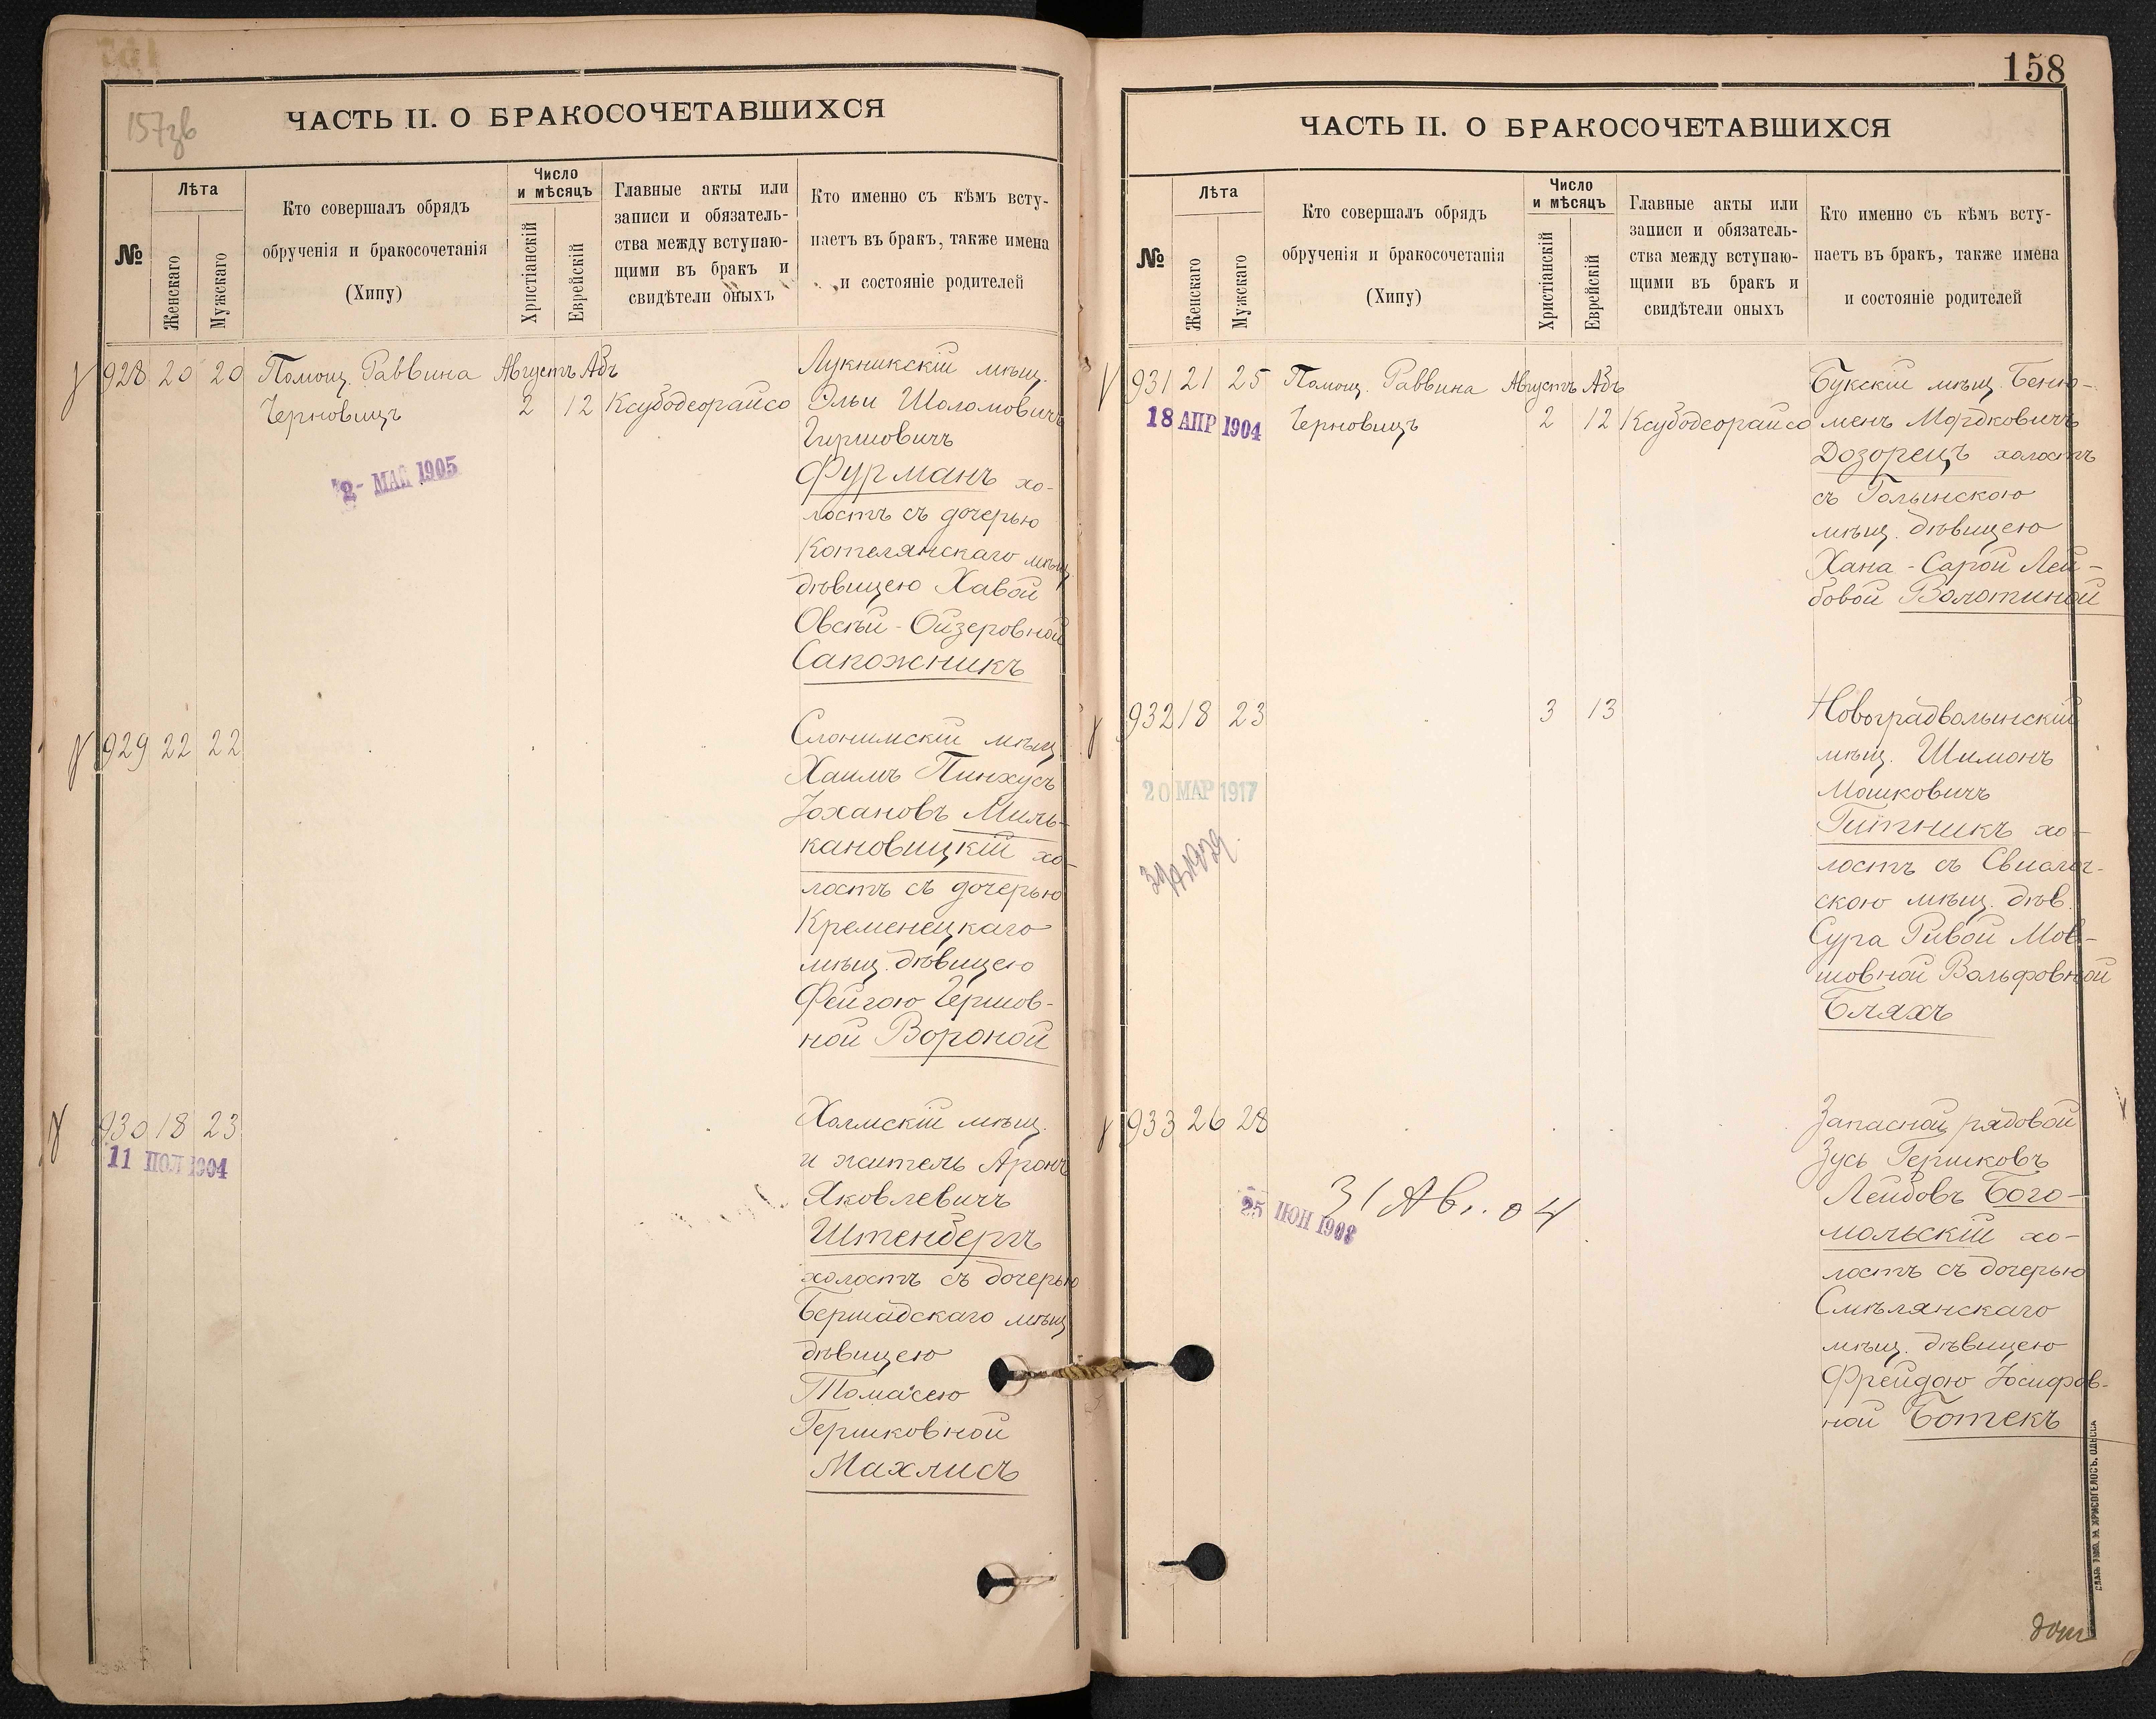 157зв
ЧАСТЬ II. О БРАКОСОЧЕТАВШИХСЯ
№
Лѣта
Женскаго
Мужскаго
Кто совершалъ обрядъ
обрученія и бракосочетанія
(Хипу)
Число
и мѣсяцъ
Христіанскій
Еврейскій
Главные акты или
записи и обязатель-
ства между вступаю-
щими въ бракъ и
свидѣтели оныхъ
Кто именно съ кѣмъ всту-
паетъ въ бракъ, также имена
и состояніе родителей
928 20 20 Помощ. Раввина Августъ Абъ
Черновицъ 2 12 Ксубодеорайсо
МАЯ 1905
Лукникскій мѣщ.
Эльи Шоломовичъ
Гиршовичъ
Фурманъ хо-
лостъ съ дочерью
Котелянскаго мѣщ
дѣвицею Хавой
Овсѣй-Ойзеровной
Сапожникъ
929 22 22
Слонимскій мѣщ.
Хаимъ Пинхусъ
Іохановъ Миль-
кановицкій хо-
лостъ съ дочерью
Кременецкаго
мѣщ. дѣвицею
Фейгою Гершов-
ной Вороной
930 18 23
11 ІЮЛ 1904
Холмскій мѣщ.
и житель Аронъ
Яковлевичъ
Штенбергъ
холостъ съ дочерью
Бершадскаго мѣщ
дѣвицею
Томасею
Гершковной
Махлисъ
158
ЧАСТЬ II. О БРАКОСОЧЕТАВШИХСЯ
№
Лѣта
Женскаго
Мужскаго
Кто совершалъ обрядъ
обрученія и бракосочетанія
(Хипу)
Число
и мѣсяцъ
Христіанскій
Еврейскій
Главные акты или
записи и обязатель-
ства между вступаю-
щими въ бракъ и
свидѣтели оныхъ
Кто именно съ кѣмъ всту-
паетъ въ бракъ, также имена
и состояніе родителей
931 21 25 Помощ. Раввина Августъ Абъ
18 АПР 1904 Черновицъ 2 12 Ксубодеорайсо
Букскій мѣщ. Беню-
менъ Мордковичъ
Дозорецъ холостъ
съ Голынскою
мѣщ. дѣвицею
Хана-Сарой Лей-
бовой Волотиной
932 18 23 3 13
20 МАР 1917
Новоградволынскій
мѣщ. Шимонъ
Мошковичъ
Гитникъ хо-
лостъ съ Свислоч-
скою мѣщ. дѣв.
Сура Ривой Мов-
шовной Вольфовной
Бляхъ
933 26 28
31 Ав. 04
25 ІЮН 1908
Запасной рядовой
Зусь Гершковъ
Лейбовъ Бого-
мольскій хо-
лостъ съ дочерью
Смѣлянскаго
мѣщ. дѣвицею
Фрейдою Іосифов-
ной Ботекъ